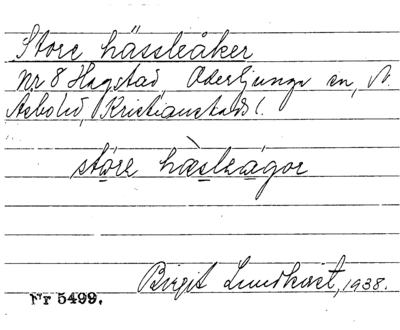 Store hässleåker
Nr 8 Hagstad Oderljunga sn, N.
Åsbo hd, Kristianstads l.
störe hàsleågor
Birgit Lundkvist, 1938.
Nr 5499.